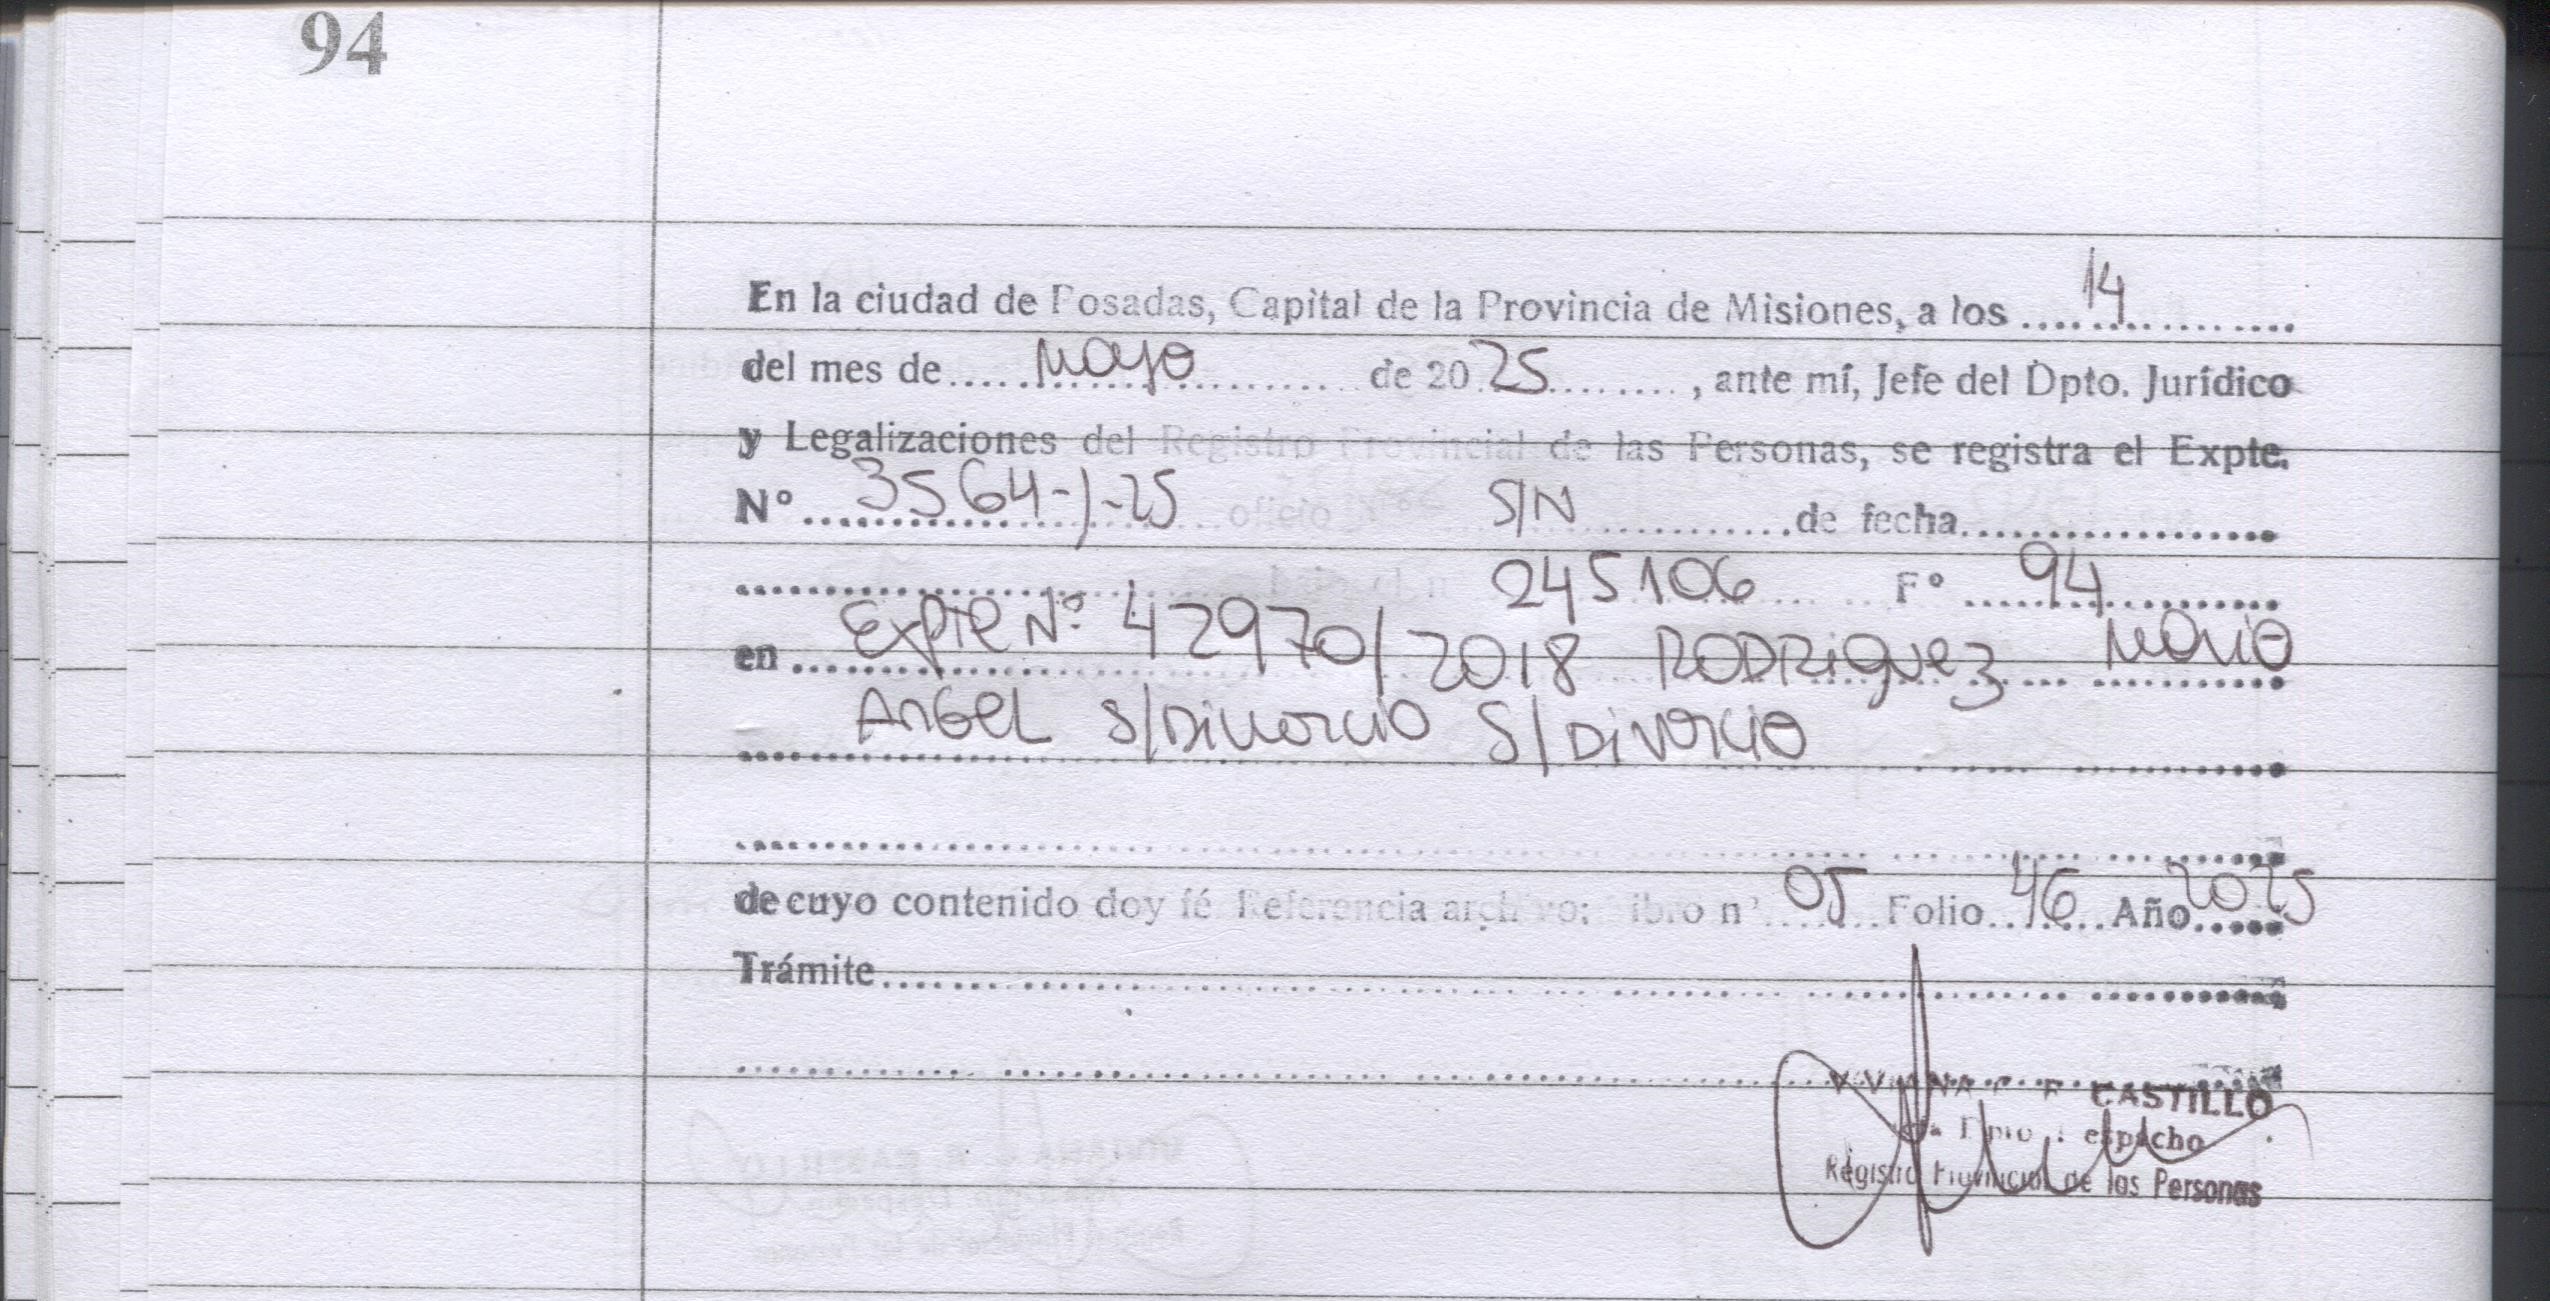 94
En la ciudad de Posadas, Capital de la Provincia de Misiones, a los 14
del mes de Mayo de 2025, ante mí, Jefe del Dpto. Jurídico
y Legalizaciones del Registro Provincial de las Personas, se registra el Expte.
Nº 3564-J-25 oficio S/N de fecha
245106 Fº 94
en Expte Nº 42970/2018 RODRIGUEZ MARIO
ANGEL S/DIVORCIO S/DIVORCIO
de cuyo contenido doy fé Referencia archivo: Libro nº 05 Folio 46 Año 2025
Trámite
CASTILLO
Dpto. Despacho
Registro Provincial de las Personas